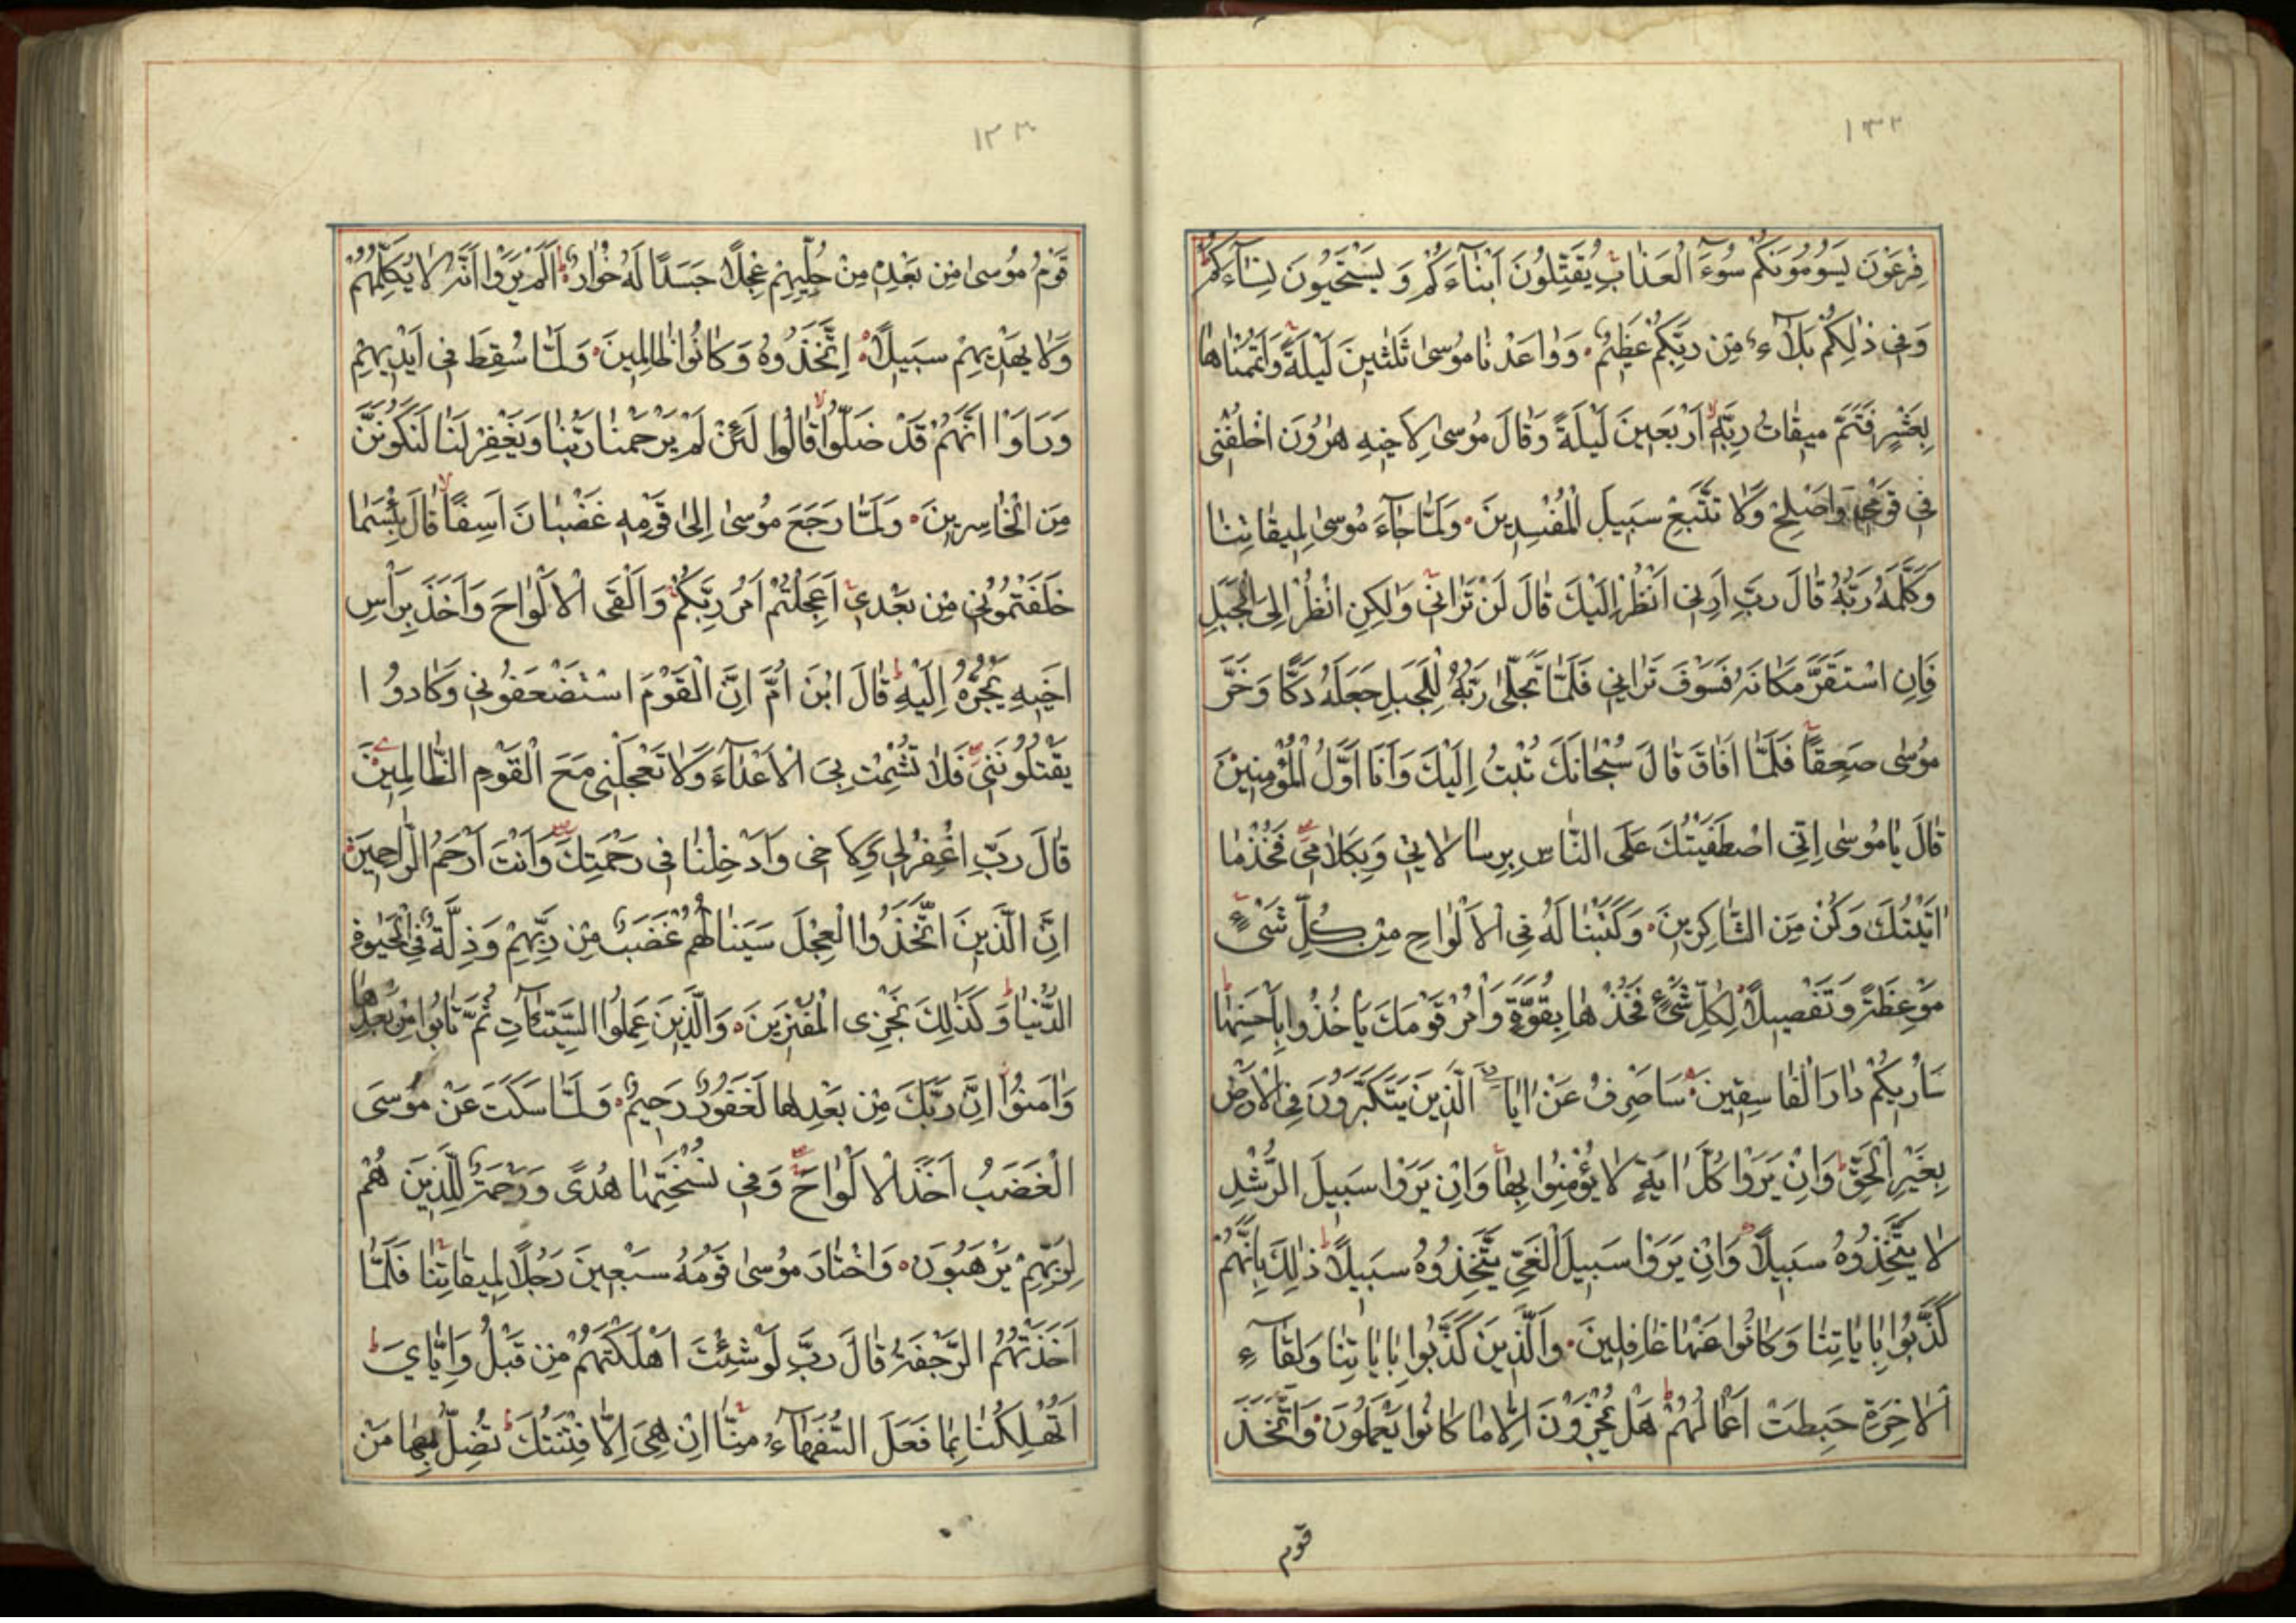 ١٣٢
فِرْعَوْنَ يَسُومُونَكُمْ سُوءَ الْعَذَابِ يُقَتِّلُونَ اَبْنَاءَكُمْ وَ يَسْتَحْيُونَ نِسَاءَكُمْ
وَفِى ذٰلِكُمْ بَلَآءٌ مِنْ رَبِّكُمْ عَظِيمٌ وَوَاعَدْنَا مُوسٰى ثَلٰثِينَ لَيْلَةً وَاَتْمَمْنَاهَا
بِعَشْرٍ فَتَمَّ مِيقَاتُ رَبِّهِ اَرْبَعِينَ لَيْلَةً وَقَالَ مُوسٰى لِاَخِيهِ هٰرُونَ اخْلُفْنِى
فِى قَوْمِى وَاَصْلِحْ وَلَا تَتَّبِعْ سَبِيلَ الْمُفْسِدِينَ وَلَمَّا جَآءَ مُوسٰى لِمِيقَاتِنَا
وَكَلَّمَهُ رَبُّهُ قَالَ رَبِّ اَرِنِى اَنْظُرْ اِلَيْكَ قَالَ لَنْ تَرَانِى وَلٰكِنِ انْظُرْ اِلَى الْجَبَلِ
فَاِنِ اسْتَقَرَّ مَكَانَهُ فَسَوْفَ تَرَانِى فَلَمَّا تَجَلّٰى رَبُّهُ لِلْجَبَلِ جَعَلَهُ دَكًّا وَخَرَّ
مُوسٰى صَعِقًا فَلَمَّا اَفَاقَ قَالَ سُبْحَانَكَ تُبْتُ اِلَيْكَ وَاَنَا اَوَّلُ الْمُؤْمِنِينَ
قَالَ يَا مُوسٰى اِنِّى اصْطَفَيْتُكَ عَلَى النَّاسِ بِرِسَالَاتِى وَبِكَلَامِى فَخُذْ مَا
اٰتَيْتُكَ وَكُنْ مِنَ الشَّاكِرِينَ وَكَتَبْنَا لَهُ فِى الْاَلْوَاحِ مِنْ كُلِّ شَىْءٍ
مَوْعِظَةً وَتَفْصِيلًا لِكُلِّ شَىْءٍ فَخُذْهَا بِقُوَّةٍ وَاْمُرْ قَوْمَكَ يَاْخُذُوا بِاَحْسَنِهَا
سَاُرِيكُمْ دَارَ الْفَاسِقِينَ سَاَصْرِفُ عَنْ اٰيَاتِىَ الَّذِينَ يَتَكَبَّرُونَ فِى الْاَرْضِ
بِغَيْرِ الْحَقِّ وَاِنْ يَرَوْا كُلَّ اٰيَةٍ لَا يُؤْمِنُوا بِهَا وَاِنْ يَرَوْا سَبِيلَ الرُّشْدِ
لَا يَتَّخِذُوهُ سَبِيلًا وَاِنْ يَرَوْا سَبِيلَ الْغَىِّ يَتَّخِذُوهُ سَبِيلًا ذٰلِكَ بِاَنَّهُمْ
كَذَّبُوا بِاٰيَاتِنَا وَكَانُوا عَنْهَا غَافِلِينَ وَالَّذِينَ كَذَّبُوا بِاٰيَاتِنَا وَلِقَآءِ
الْاٰخِرَةِ حَبِطَتْ اَعْمَالُهُمْ هَلْ يُجْزَوْنَ اِلَّا مَا كَانُوا يَعْمَلُونَ وَاتَّخَذَ
قوم
قَوْمُ مُوسٰى مِنْ بَعْدِهِ مِنْ حُلِيِّهِمْ عِجْلًا جَسَدًا لَهُ خُوَارٌ اَلَمْ يَرَوْا اَنَّهُ لَا يُكَلِّمُهُمْ
وَلَا يَهْدِيهِمْ سَبِيلًا اِتَّخَذُوهُ وَكَانُوا ظَالِمِينَ وَلَمَّا سُقِطَ فِى اَيْدِيهِمْ
وَرَاَوْا اَنَّهُمْ قَدْ ضَلُّوا قَالُوا لَئِنْ لَمْ يَرْحَمْنَا رَبُّنَا وَيَغْفِرْ لَنَا لَنَكُونَنَّ
مِنَ الْخَاسِرِينَ وَلَمَّا رَجَعَ مُوسٰى اِلٰى قَوْمِهِ غَضْبَانَ اَسِفًا قَالَ بِئْسَمَا
خَلَفْتُمُونِى مِنْ بَعْدِى اَعَجِلْتُمْ اَمْرَ رَبِّكُمْ وَاَلْقَى الْاَلْوَاحَ وَاَخَذَ بِرَاْسِ
اَخِيهِ يَجُرُّهُ اِلَيْهِ قَالَ ابْنَ اُمَّ اِنَّ الْقَوْمَ اسْتَضْعَفُونِى وَكَادُوا
يَقْتُلُونَنِى فَلَا تُشْمِتْ بِىَ الْاَعْدَآءَ وَلَا تَجْعَلْنِى مَعَ الْقَوْمِ الظَّالِمِينَ
قَالَ رَبِّ اغْفِرْ لِى وَلِاَخِى وَاَدْخِلْنَا فِى رَحْمَتِكَ وَاَنْتَ اَرْحَمُ الرَّاحِمِينَ
اِنَّ الَّذِينَ اتَّخَذُوا الْعِجْلَ سَيَنَالُهُمْ غَضَبٌ مِنْ رَبِّهِمْ وَذِلَّةٌ فِى الْحَيٰوةِ
الدُّنْيَا وَكَذٰلِكَ نَجْزِى الْمُفْتَرِينَ وَالَّذِينَ عَمِلُوا السَّيِّئَاتِ ثُمَّ تَابُوا مِنْ بَعْدِهَا
وَاٰمَنُوا اِنَّ رَبَّكَ مِنْ بَعْدِهَا لَغَفُورٌ رَحِيمٌ وَلَمَّا سَكَتَ عَنْ مُوسَى
الْغَضَبُ اَخَذَ الْاَلْوَاحَ وَفِى نُسْخَتِهَا هُدًى وَرَحْمَةٌ لِلَّذِينَ هُمْ
لِرَبِّهِمْ يَرْهَبُونَ وَاخْتَارَ مُوسٰى قَوْمَهُ سَبْعِينَ رَجُلًا لِمِيقَاتِنَا فَلَمَّا
اَخَذَتْهُمُ الرَّجْفَةُ قَالَ رَبِّ لَوْ شِئْتَ اَهْلَكْتَهُمْ مِنْ قَبْلُ وَاِيَّاىَ
اَتُهْلِكُنَا بِمَا فَعَلَ السُّفَهَآءُ مِنَّا اِنْ هِىَ اِلَّا فِتْنَتُكَ تُضِلُّ بِهَا مَنْ